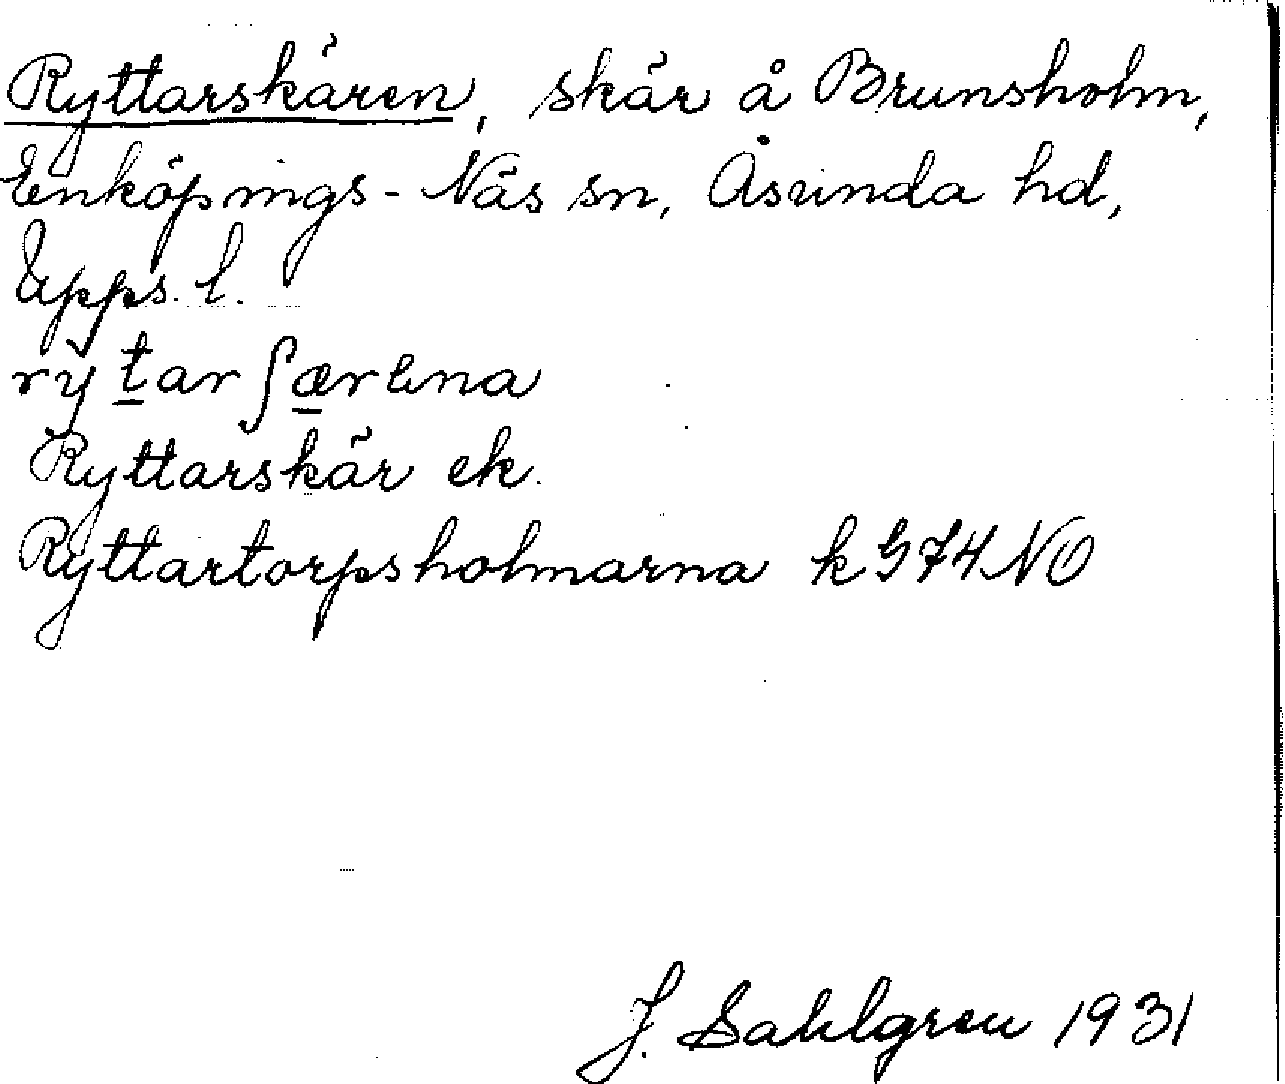 Ryttarskären, skär å Brunsholm,
Enköpings-Näs sn, Åsunda hd,
Upps. l.
rỳtarʃærena
Ryttarskär ek.
Ryttartorpsholmarna k G74NO
J. Sahlgren 1931